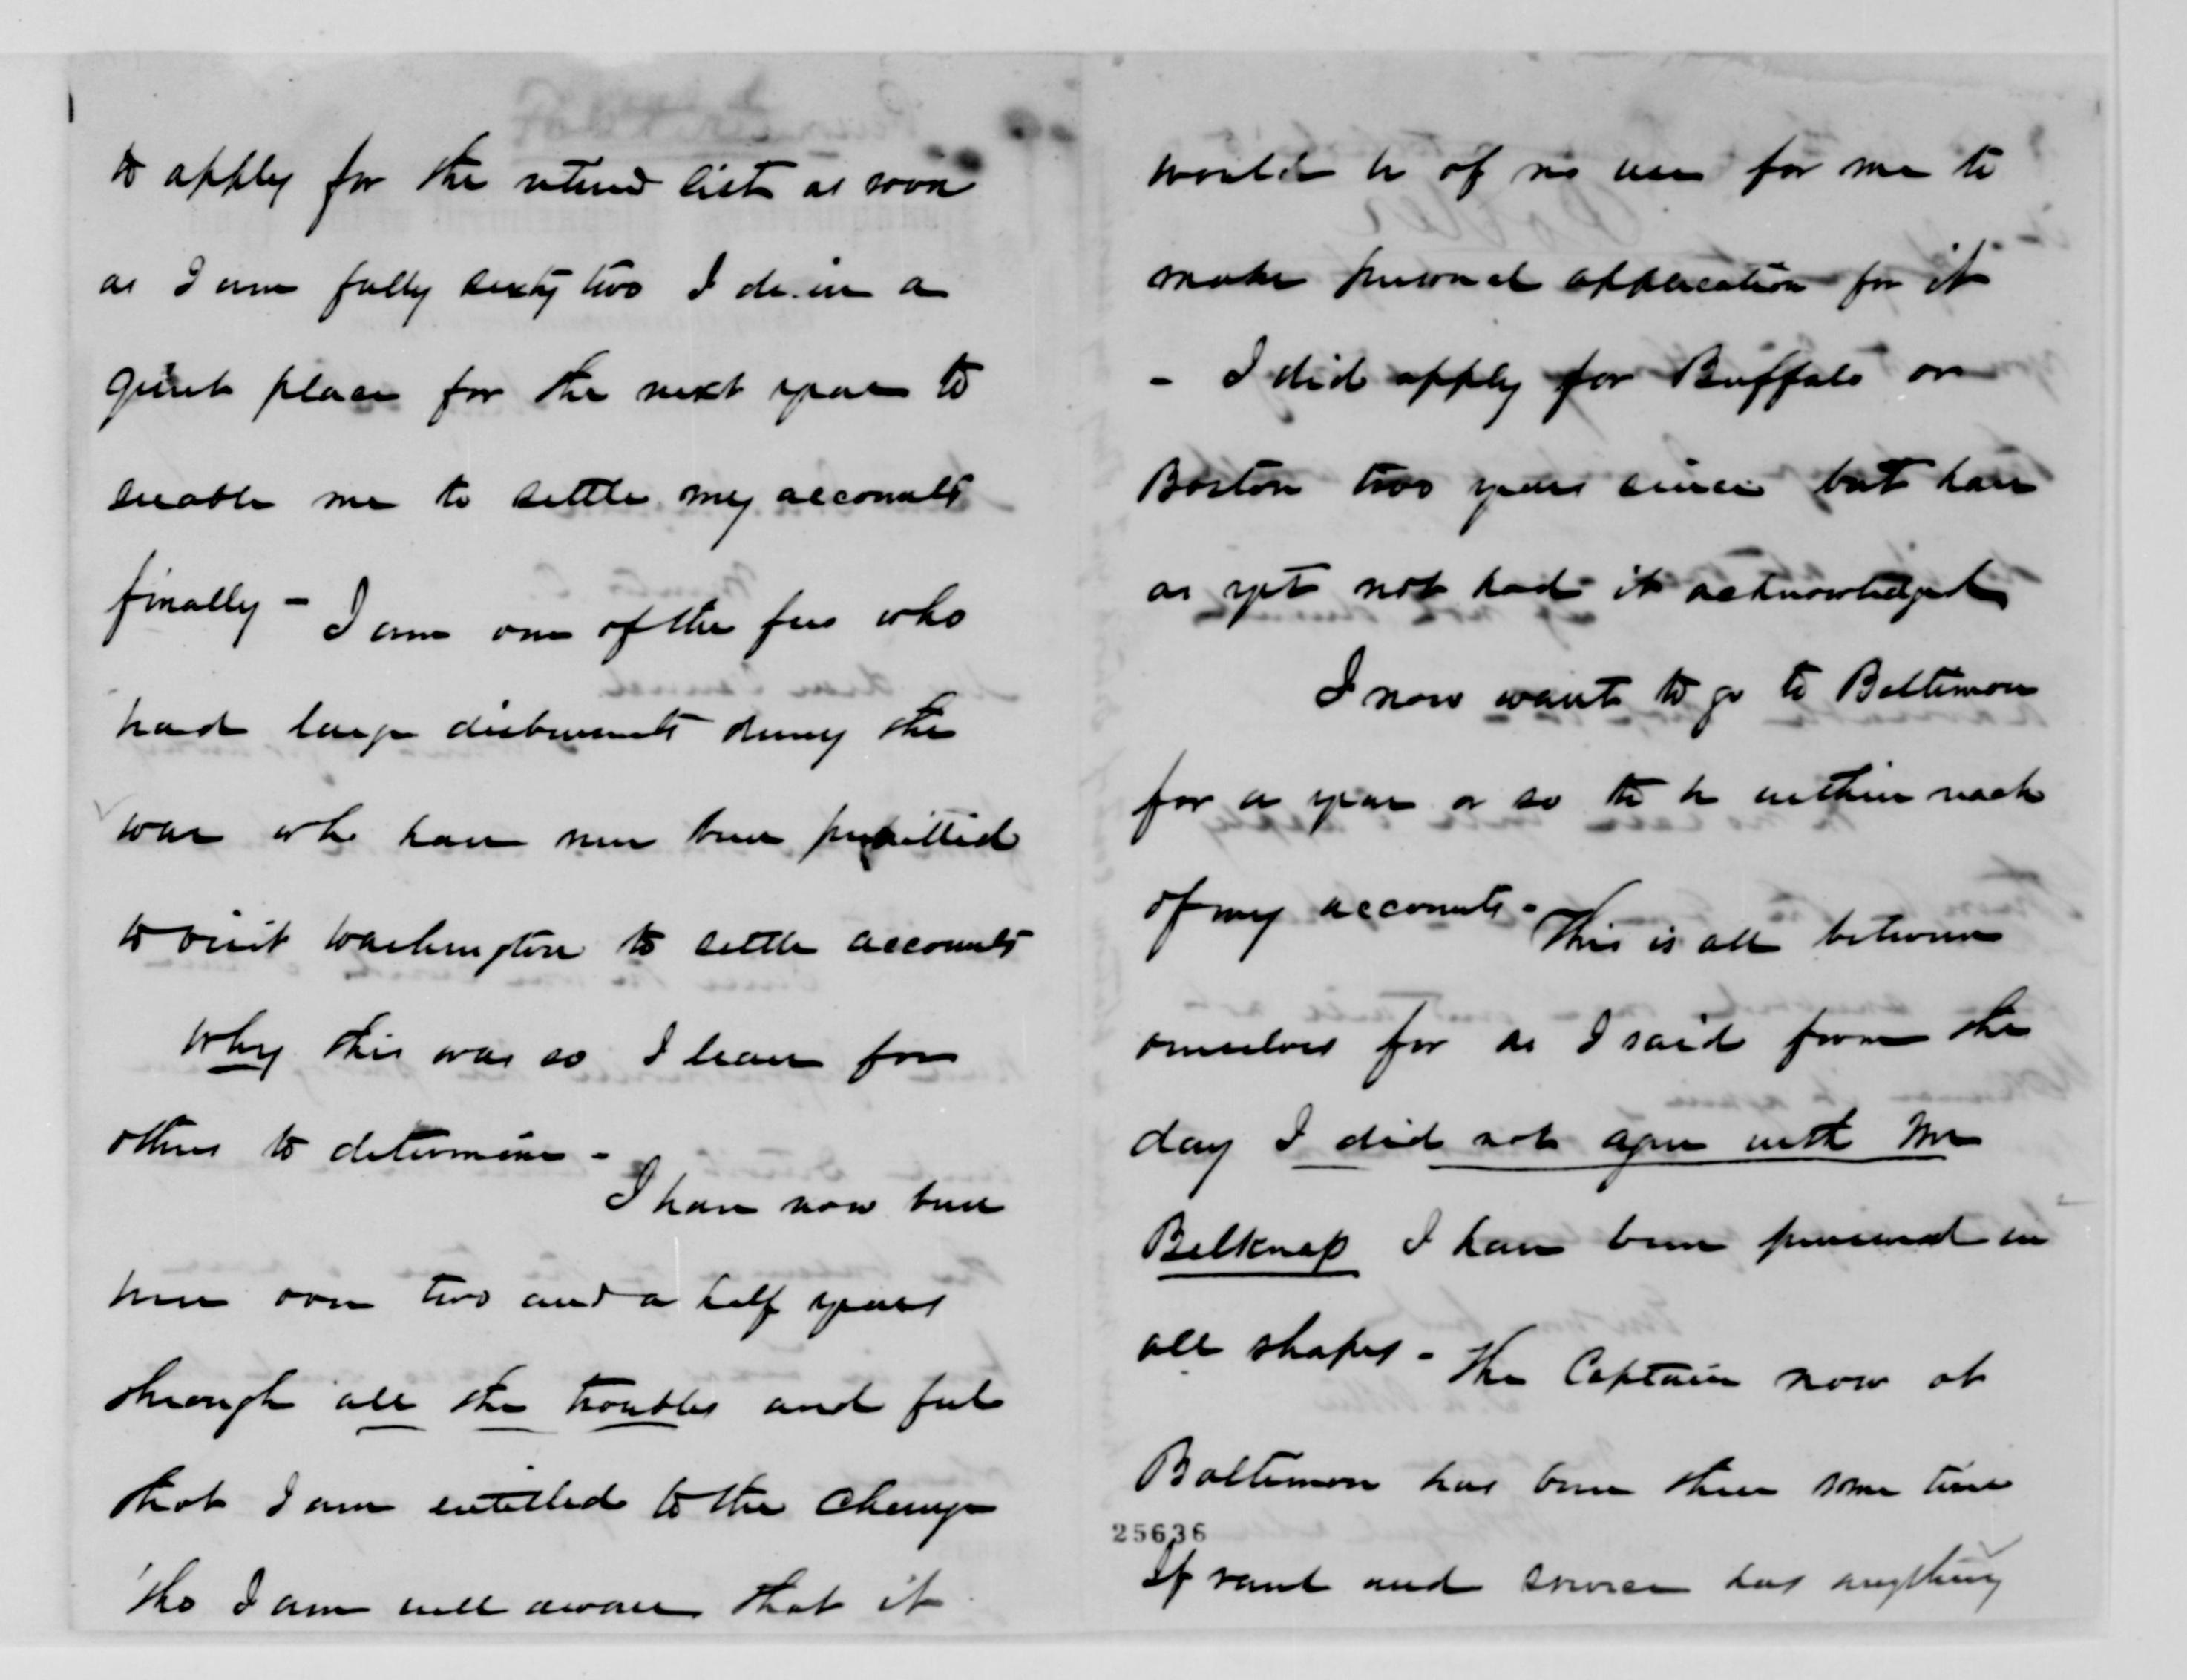 to apply for the retired list as soon
as I am fully sixty two I desire a
quiet place for the next year to
enable me to settle my accounts
finally - I am one of the few who
had large disbursments during the
war who have never been permitted
to visit Washington to settle accounts
Why this was so I leave for
others to determine -
I have now been
here over two and a half years
through all the troubles and feel
that I am entitled to the change
'tho I am well aware that it
would be of no use for me to
make personal application for it
- I did apply for Buffalo or
Boston two years since but have
as yet not had it acknowledged
I now want to go to Baltimore
for a year or so to be within reach
of my accounts - This is all between
ourselves for as I said from the
day I did not agree with Mr
Belknap I have been pursued in
all shapes - The Captain now at
Baltimore has been there some time
25636
If rank and service has anything